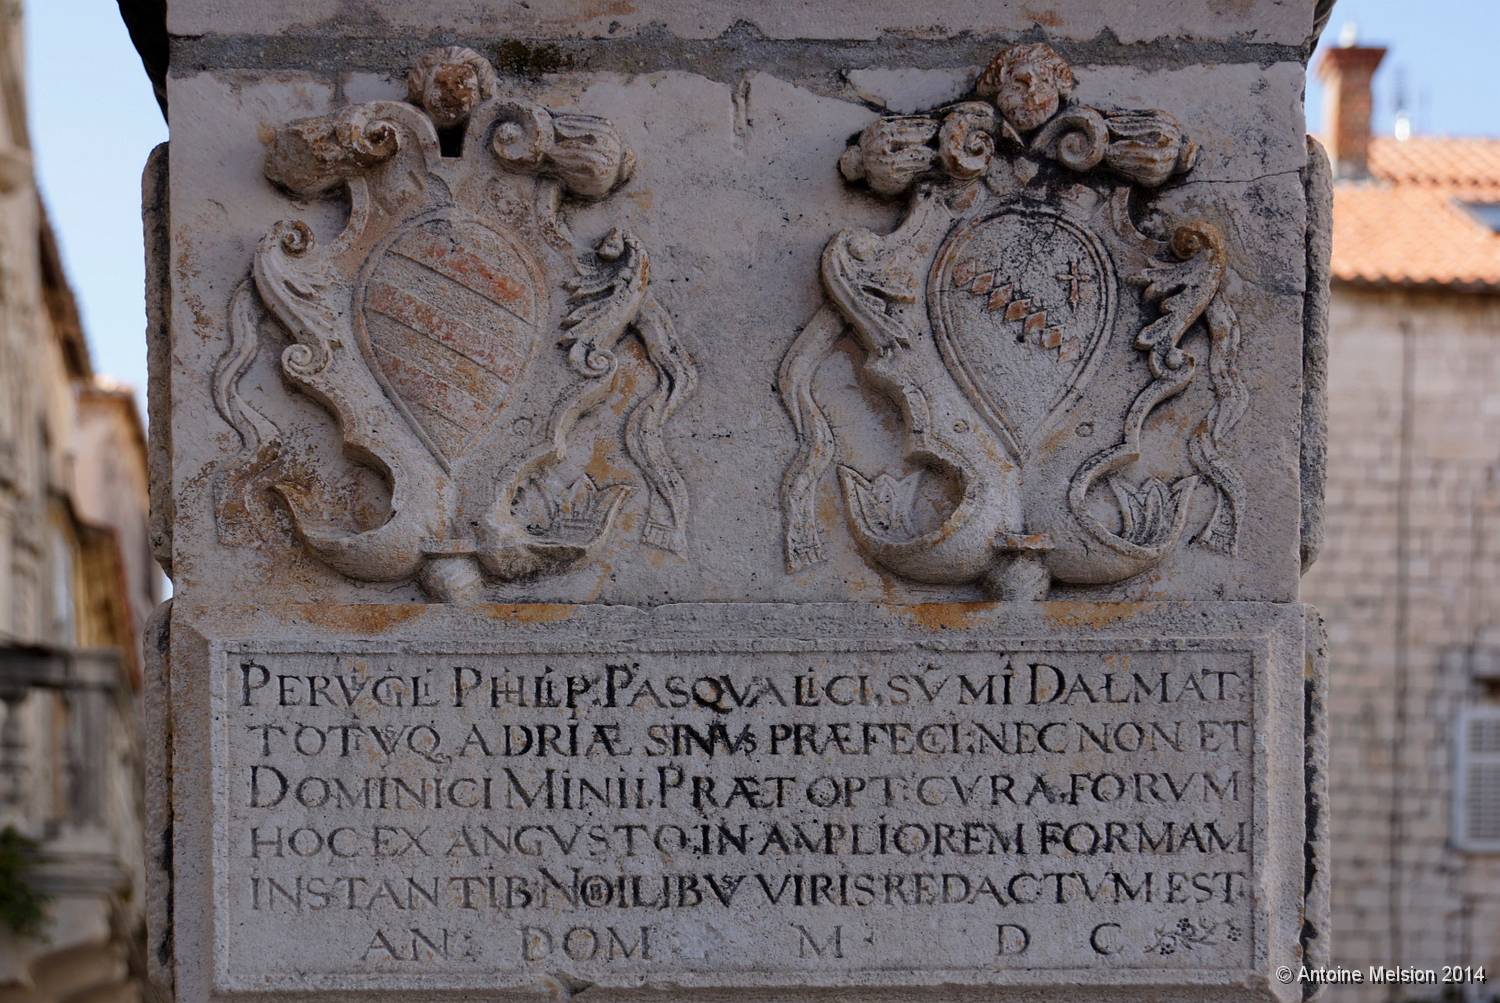 PERVIGILI PHILIP: PASQVALICI, SVMI DALMAT:
TOTIVQ. ADRIÆ SINVS PRÆFECTI: NEC NON ET
DOMINICI MINII. PRÆT OPT: CVRA. FORVM
HOC EX ANGVSTO. IN AMPLIOREM FORMAM
INSTANTIB: NOBILIBVS VIRIS REDACTVM EST.
AN: DOM M D C
© Antoine Melsion 2014